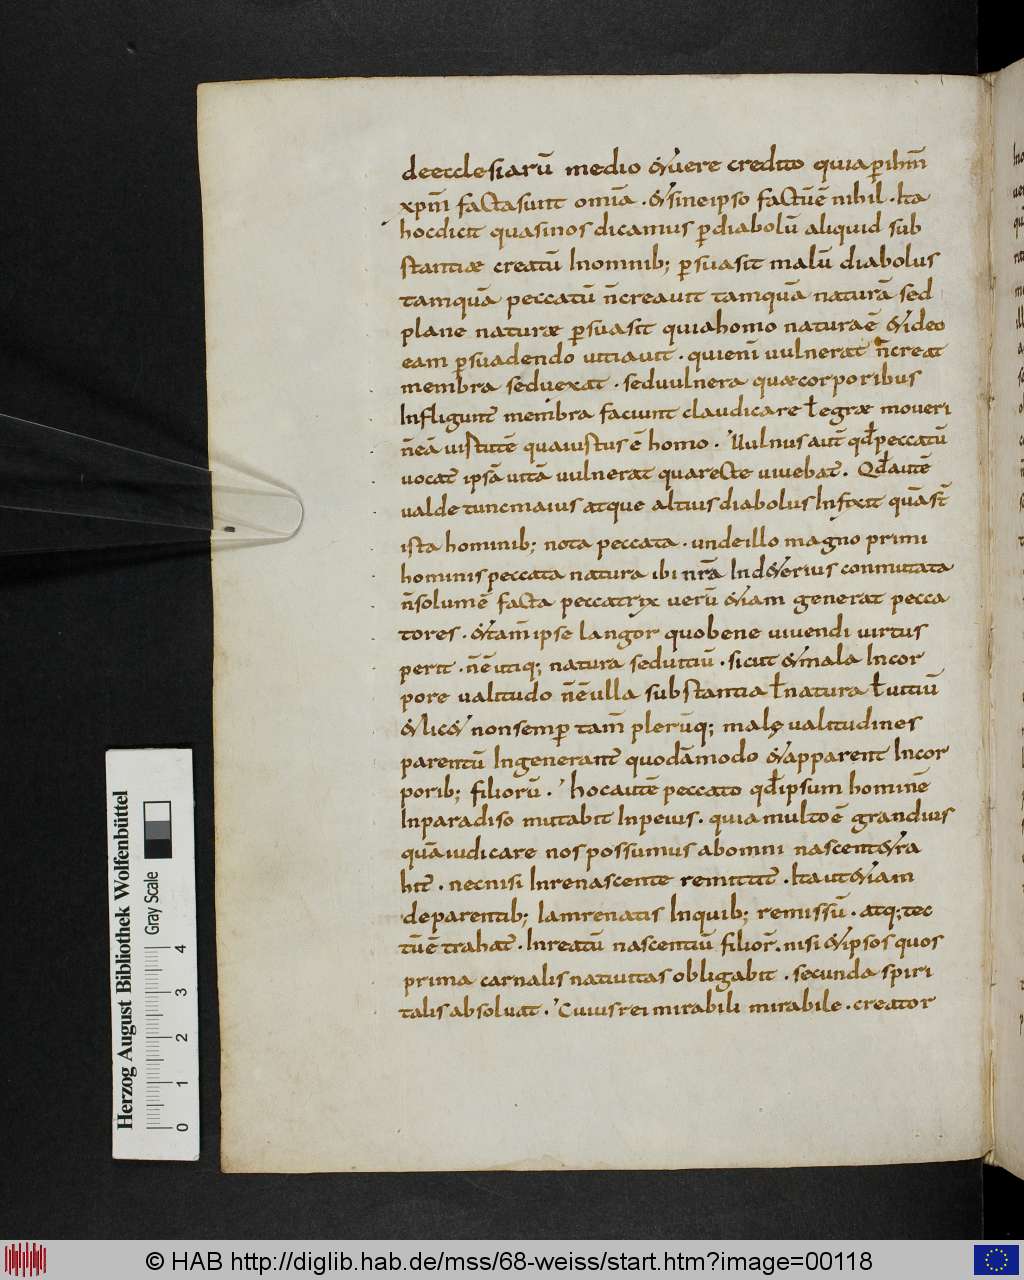 deecclesiarū medio &uere credito quia p̱ ihm̄
xpm̄ factasunt omīa . &sineipso factūē nihil . Ita
hocdicit quasinos dicamus p̱diabolū aliquid sub
stantiæ creatū Inomnib; p̱suasit malū diabolus
tamquā peccatū n̄creauit tamquā naturā sed
plane naturæ p̱suasit quiahomo naturaē &ideo
eam p̱suadendo uitiauit . quienī uulnerat n̄creat
membra seduexat . seduulnera quæcorporibus
Infligunt membra faciunt claudicare ł egræ moueri
n̄eā uirtutē quaiustus ē homo . Uulnus aut̄ qđpeccatū
uocat ipsā uitā uulnerat quarecte uiuebat . Qđautē
ualde tuncmaius atque altius diabolus Infixit quāst̄
ista hominib; nota peccata . undeillo magno primi
hominis peccata natura ibi nr̄a Ind&erius conmutata
n̄solumē facta peccatrix uerū &iam generat pecca
tores . &tam̄ ipse langor quobene uiuendi uirtus
perit . n̄ē utiq; natura seduitiū . sicut &mala Incor
pore ualitudo n̄ē ulla substantia ł natura ł uitiū
&lic& nonsemp̱ tam̄ plerūq; malę ualitudines
parentū Ingenerant quodāmodo &apparent Incor
porib; filiorū . hocautē peccato qđipsum hominē
Inparadiso mutabit Inpeius . quia multo ē grandius
quāiudicare nos possumus abomni nascent&ra
hit . necnisi Inrenascente remittit . Itaut&iam
deparentib; Iamrenatis Inquib; remissū . atq; tec
tūē trahat . Inreatū nascentiū filior̄. nisi &ipsos quos
prima carnalis natiuitas obligabit . secunda spiri
talis absoluat . Cuius rei mirabili mirabile . creator
Herzog August Bibliothek Wolfenbüttel
Gray Scale
0 1 2 3 4
© HAB http://diglib.hab.de/mss/68-weiss/start.htm?image=00118